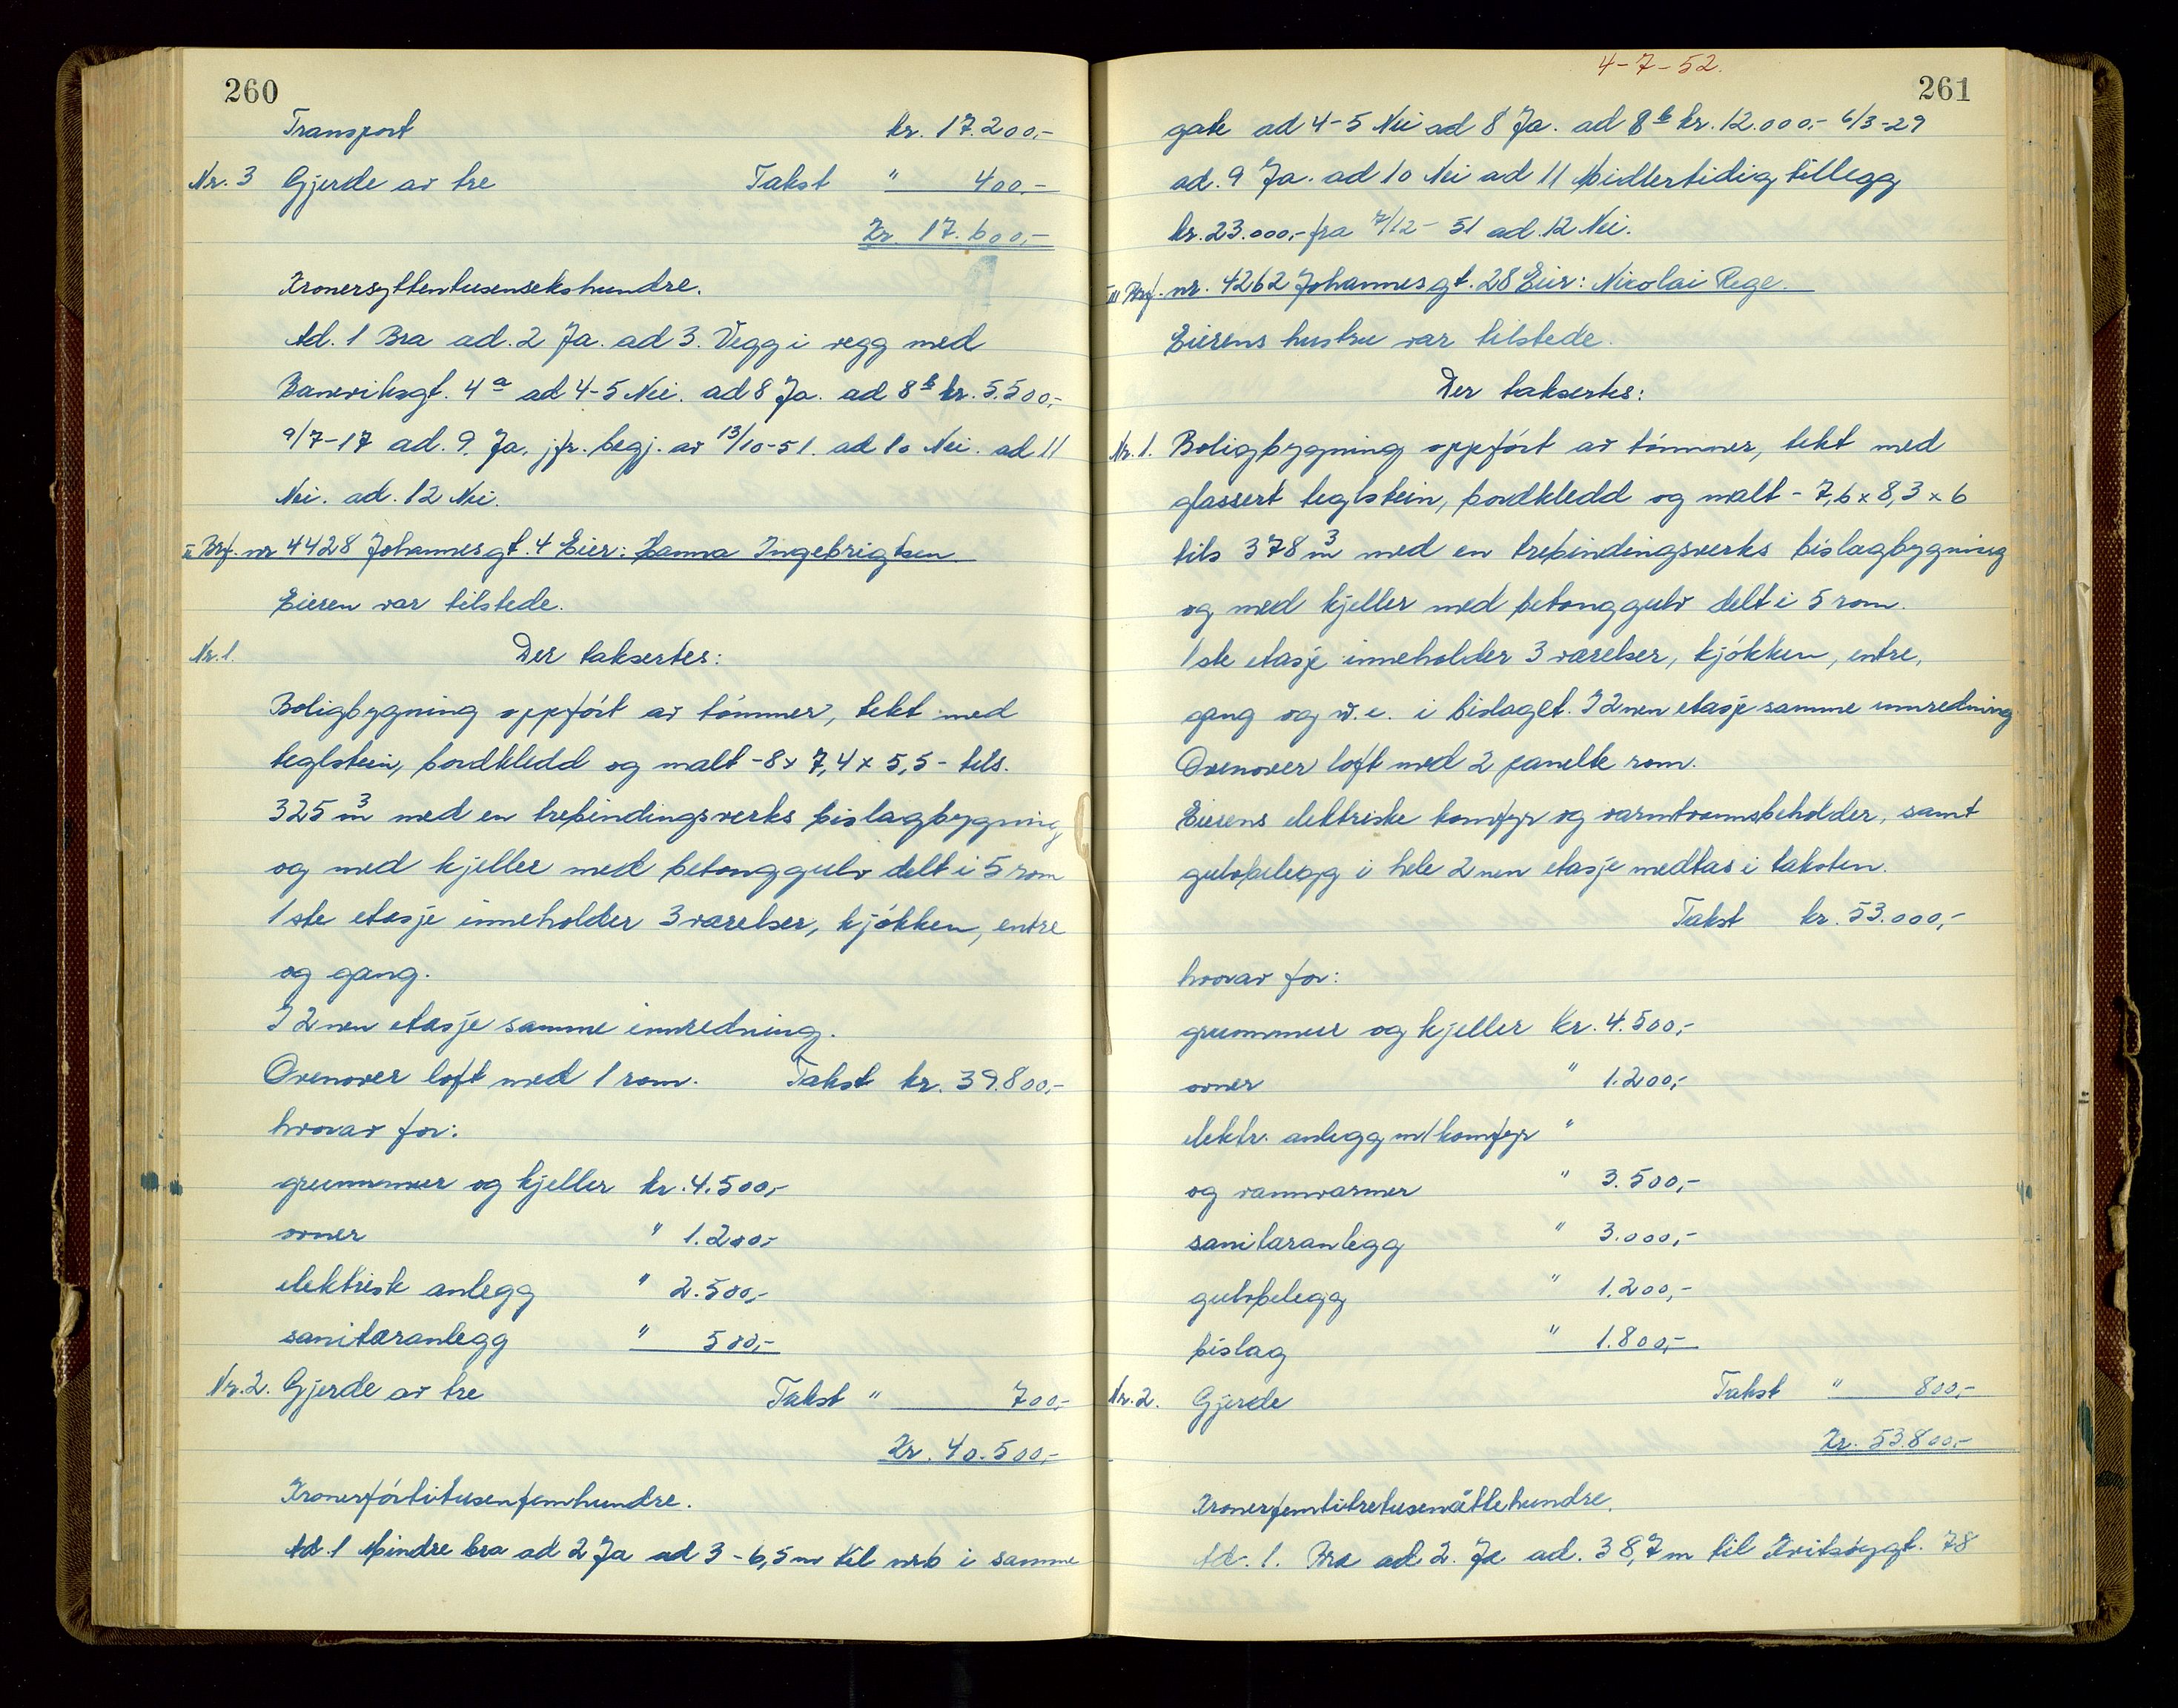 260
Transport kr. 17.200,-
Nr. 3 Gjerde av tre Takst " 400,-
Kr. 17.600,-
Kronersyttentusensekshundre.
Ad. 1 Bra ad. 2 Ja. ad 3. Vegg i vegg med
Baneviksgt. 4a ad 4-5 Nei. ad 8 Ja. ad 8b kr. 5.500,-
9/7-17 ad. 9. Ja, jfr. begj. av 13/10-51. ad 10 Nei. ad 11
Nei. ad. 12 Nei.
II Brf. nr 4428 Johannesgt. 4 Eier: Hanna Ingebrigtsen
Eieren var tilstede.
Nr. 1. Der taksertes:
Boligbygning oppført av tømmer, tekt med
teglstein, bordkledd og malt - 8 x 7,4 x 5,5 - tils.
325 m3 med en trebindingsverks bislagbygning
og med kjeller med betonggulv delt i 5 rom
1ste etasje inneholder 3 værelser, kjøkken, entre
og gang.
I 2nen etasje samme innredning.
Ovenover loft med 1 rom. Takst kr. 39.800,-
hvorav for:
grunnmur og kjeller kr. 4.500,-
ovner " 1.200,-
elektrisk anlegg " 2.500,-
sanitæranlegg " 500,-
Nr. 2. Gjerde av tre Takst " 700,-
Kr. 40.500,-
Kronerførtitusenfemhundre.
Ad. 1 Mindre bra ad 2 Ja ad 3 - 6,5 m til nr 6 i samme
4-7-52.
261
gate ad 4-5 Nei ad 8 Ja. ad 8b kr. 12.000,- 6/3-29
ad. 9 Ja. ad 10 Nei ad 11 Midlertidig tillegg
kr. 23.000,- fra 7/12-51 ad. 12 Nei.
III Brf. nr. 4262 Johannesgt. 28 Eier: Nicolai Rege.
Eierens hustru var tilstede.
Der taksertes:
Nr. 1. Boligbygning oppført av tømmer, tekt med
glassert teglstein, bordkledd og malt - 7,6 x 8,3 x 6
tils 378 m3 med en trebindingsverks bislagbygning
og med kjeller med betonggulv delt i 5 rom.
1ste etasje inneholder 3 værelser, kjøkken, entre,
gang og w.c. i bislaget. I 2nen etasje samme innredning
Ovenover loft med 2 panelte rom.
Eierens elektriske komfyr og varmtvannsbeholder, samt
gulvbelegg i hele 2nen etasje medtas i taksten.
Takst kr. 53.000,-
hvorav for:
grunnmur og kjeller kr. 4.500,-
ovner " 1.200,-
elektr. anlegg m/komfyr "
og vannvarmer " 3.500,-
sanitæranlegg " 3.000,-
gulvbelegg " 1.200,-
bislag " 1.800,-
Nr. 2. Gjerde Takst " 800,-
Kr. 53.800,-
Kronerfemtitretusenåttehundre.
Ad. 1. Bra ad 2. Ja ad. 3 8,7 m til Kvitsøygt. 78